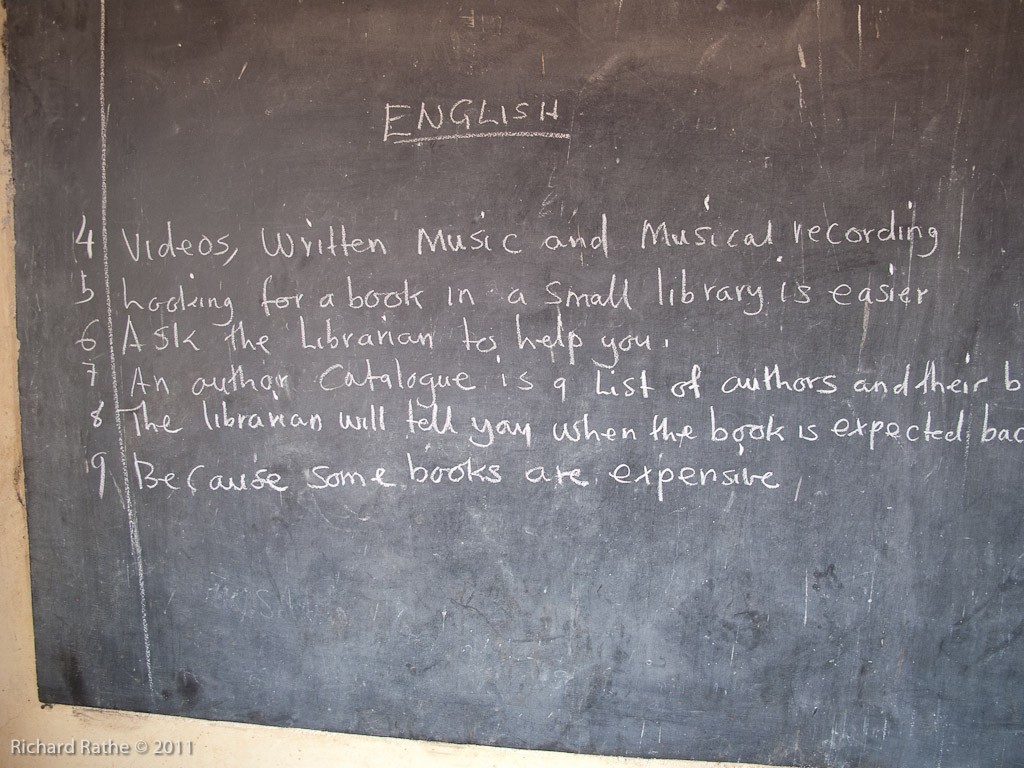 ENGLISH
4 Videos, Written Music and Musical recording
5 Looking for a book in a small library is easier
6 Ask the Librarian to help you.
7 An author Catalogue is a List of authors and their b
8 The librarian will tell you when the book is expected bac
9 Because some books are expensive
Richard Rathe © 2011